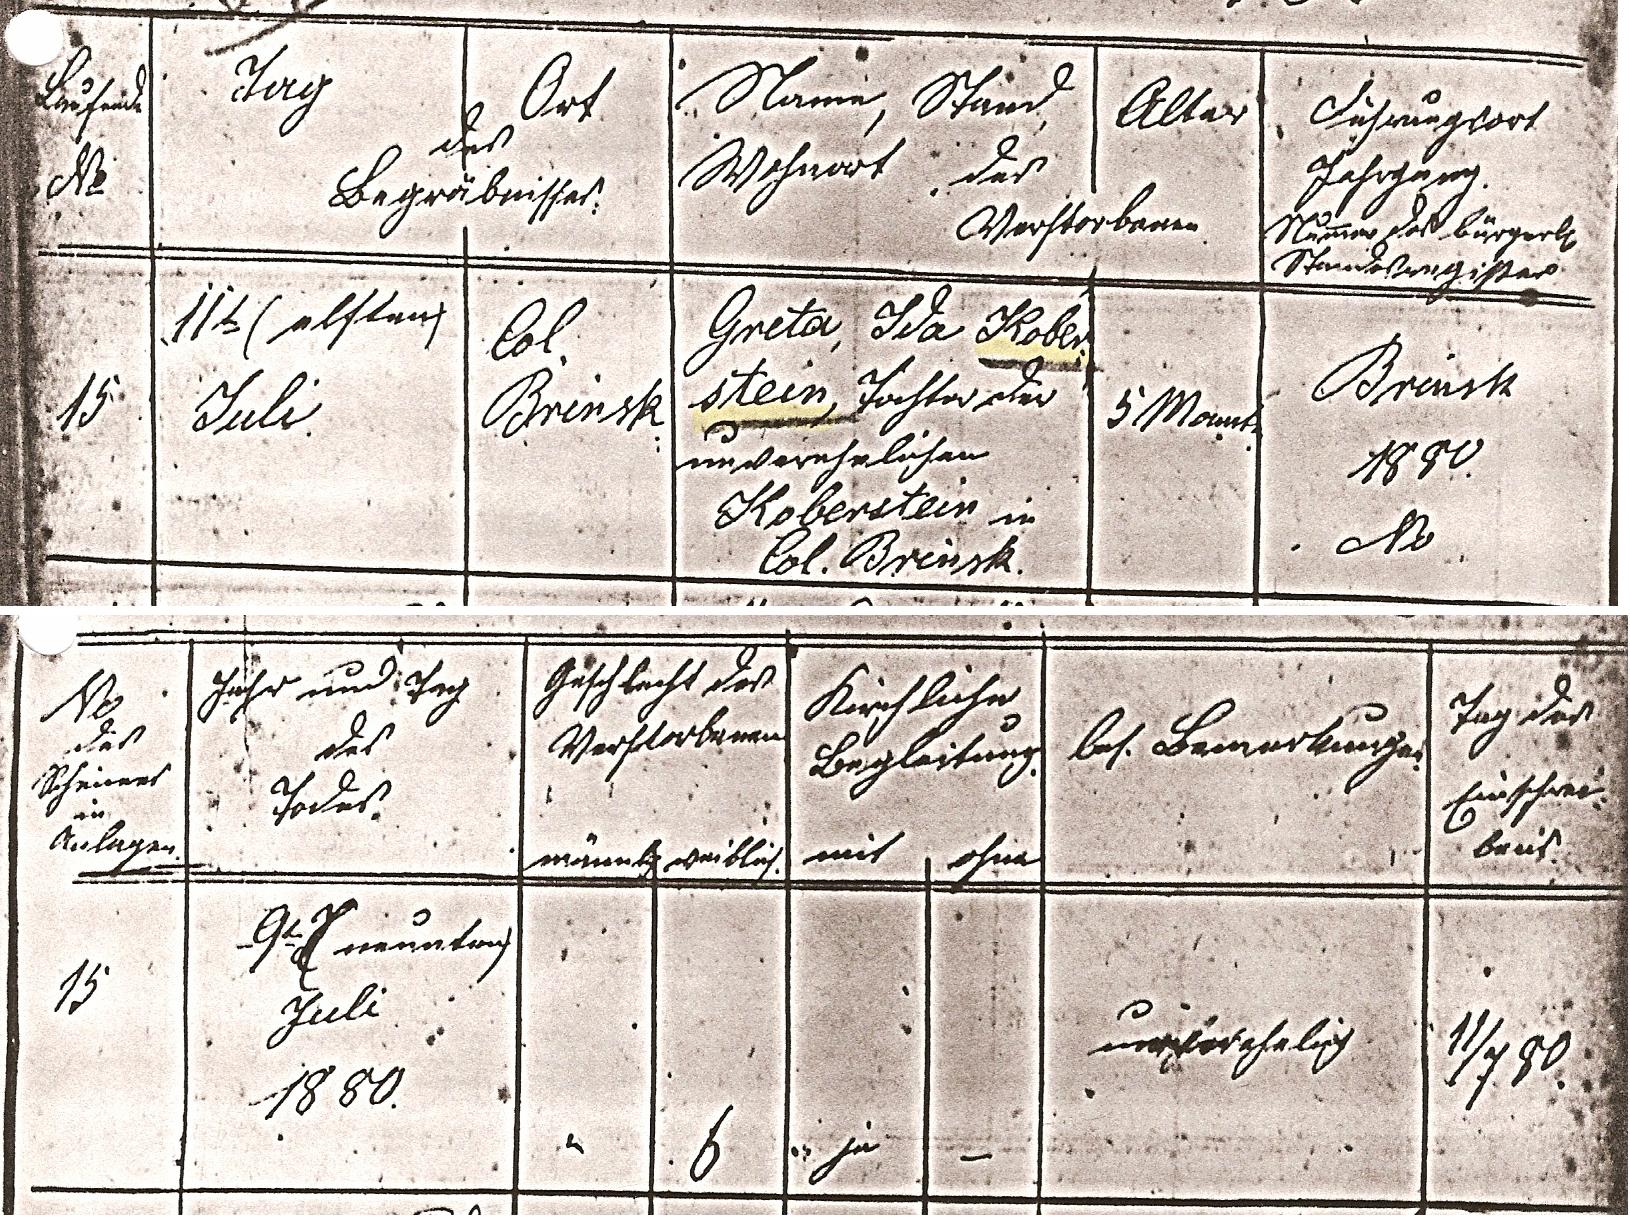 Laufende
No
Tag
Ort
des
Begräbnisses.
Name, Stand,
Wohnort des
Verstorbenen
Alter
Führungsort
Jahrgang.
Nummer des bürgerl.
Standesregister
15
11t (elften)
Juli
Col.
Brinsk.
Greta, Ida Kober
stein, Tochter der
unverehelichen
Koberstein in
Col. Brinsk.
5 Monat.
Brinsk
1880.
No
No
des
Scheines
in
Anlagen.
Jahr und Tag
des
Todes.
Geschlecht des
Verstorbenen
männl. weiblich.
Kirchliche
Begleitung.
mit ohne
bes. Bemerkungen.
Tag der
Einschrei-
bens.
15
9t (neunten)
Juli
1880.
" 6
ja —
11/7 80.